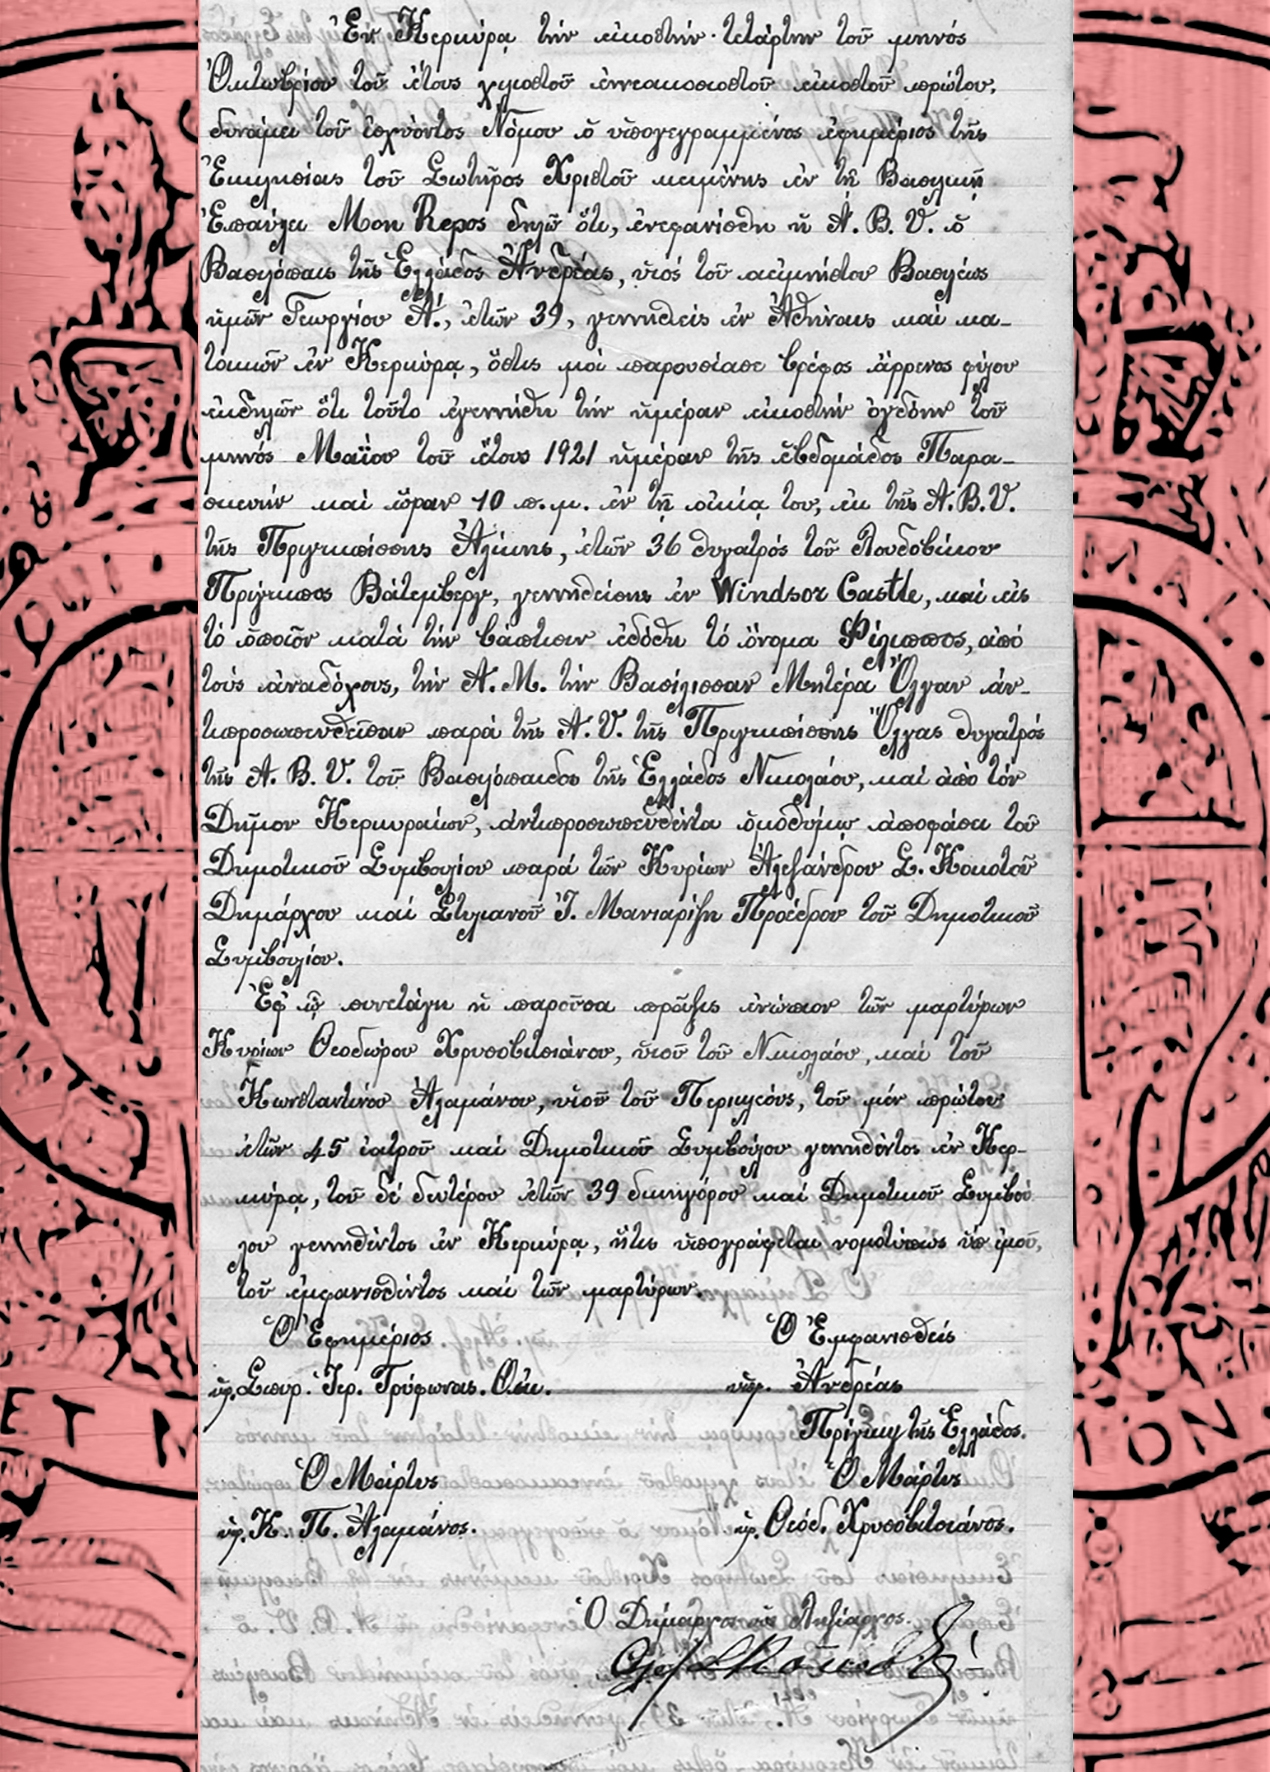 Ἐν Κερκύρᾳ τήν εἰκοστήν τετάρτην τοῦ μηνός
Ὀκτωβρίου τοῦ ἔτους χιλιοστοῦ ἐννεακοσιοστοῦ εἰκοστοῦ πρώτου,
δυνάμει τοῦ ἰσχύοντος Νόμου ὁ ὑπογεγραμμένος ἐφημέριος τῆς
Ἐκκλησίας τοῦ Σωτῆρος Χριστοῦ κειμένης ἐν τῇ Βασιλικῇ
Ἐπαύλει Mon Repos δηλῶ ὅτι, ἐνεφανίσθη ἡ Α. Β. Υ. ὁ
Βασιλόπαις τῆς Ἑλλάδος Ἀνδρέας, υἱός τοῦ ἀειμνήστου Βασιλέως
ἡμῶν Γεωργίου Α΄., ἐτῶν 39, γεννηθείς ἐν Ἀθήναις καί κα-
τοικῶν ἐν Κερκύρᾳ, ὅστις μοί παρουσίασε βρέφος ἄρρενος φύλου
ἐκδηλῶν ὅτι τοῦτο ἐγεννήθη τήν ἡμέραν εἰκοστήν ὀγδόην τοῦ
μηνός Μαΐου τοῦ ἔτους 1921 ἡμέραν τῆς ἑβδομάδος Παρα-
σκευήν καί ὥραν 10 π.μ. ἐν τῇ οἰκίᾳ του, ἐκ τῆς Α.Β.Υ.
τῆς Πριγκιπίσσης Ἀλίκης, ἐτῶν 36 θυγατρός τοῦ Λουδοβίκου
Πρίγκιπος Βάτεμβεργ, γεννηθείσης ἐν Windsor Castle, καί εἰς
τό ὁποῖον κατά τήν βάπτισιν ἐδόθη τό ὄνομα Φίλιππος, ἀπό
τούς ἀναδόχους, τήν Α. Μ. τήν Βασίλισσαν Μητέρα Ὄλγαν ἀν-
τιπροσωπευθεῖσαν παρά τῆς Α. Υ. τῆς Πριγκιπίσσης Ὄλγας θυγατρός
τῆς Α. Β. Υ. τοῦ Βασιλόπαιδος τῆς Ἑλλάδος Νικολάου, καί ἀπό τόν
Δῆμον Κερκυραίων, ἀντιπροσωπευθέντα ὁμοθύμῳ ἀποφάσει τοῦ
Δημοτικοῦ Συμβουλίου παρά τῶν Κυρίων Ἀλεξάνδρου Σ. Κοκοτοῦ
Δημάρχου καί Στυλιανοῦ Ἰ. Μανιαρίζη Προέδρου τοῦ Δημοτικοῦ
Συμβουλίου.
Ἐφ' ᾧ συνετάγη ἡ παροῦσα πρᾶξις ἐνώπιον τῶν μαρτύρων
Κυρίων Θεοδώρου Χρυσοβιτσιάνου, υἱοῦ τοῦ Νικολάου, καί τοῦ
Κωνσταντίνου Ἀλαμάνου, υἱοῦ τοῦ Περικλέους, τοῦ μέν πρώτου
ἐτῶν 45 ἰατροῦ καί Δημοτικοῦ Συμβούλου γεννηθέντος ἐν Κερ-
κύρᾳ, τοῦ δέ δευτέρου ἐτῶν 39 δικηγόρου καί Δημοτικοῦ Συμβού
λου γεννηθέντος ἐν Κερκύρᾳ, ἥτις ὑπογράφεται νομοτύπως ὑπ' ἐμοῦ,
τοῦ ἐμφανισθέντος καί τῶν μαρτύρων.
Ὁ Ἐφημέριος Ὁ Ἐμφανισθείς
ὑπ. Σπυρ. Ἱερ. Τρύφωνας. Οἰκ. ὑπ. Ἀνδρέας
Πρίγκιψ τῆς Ἑλλάδος.
Ὁ Μάρτυς Ὁ Μάρτυς
ὑπ. Κ. Π. Ἀλαμάνος. ὑπ. Θεόδ. Χρυσοβιτσιάνος.
Ὁ Δήμαρχος ὡς Ληξίαρχος.